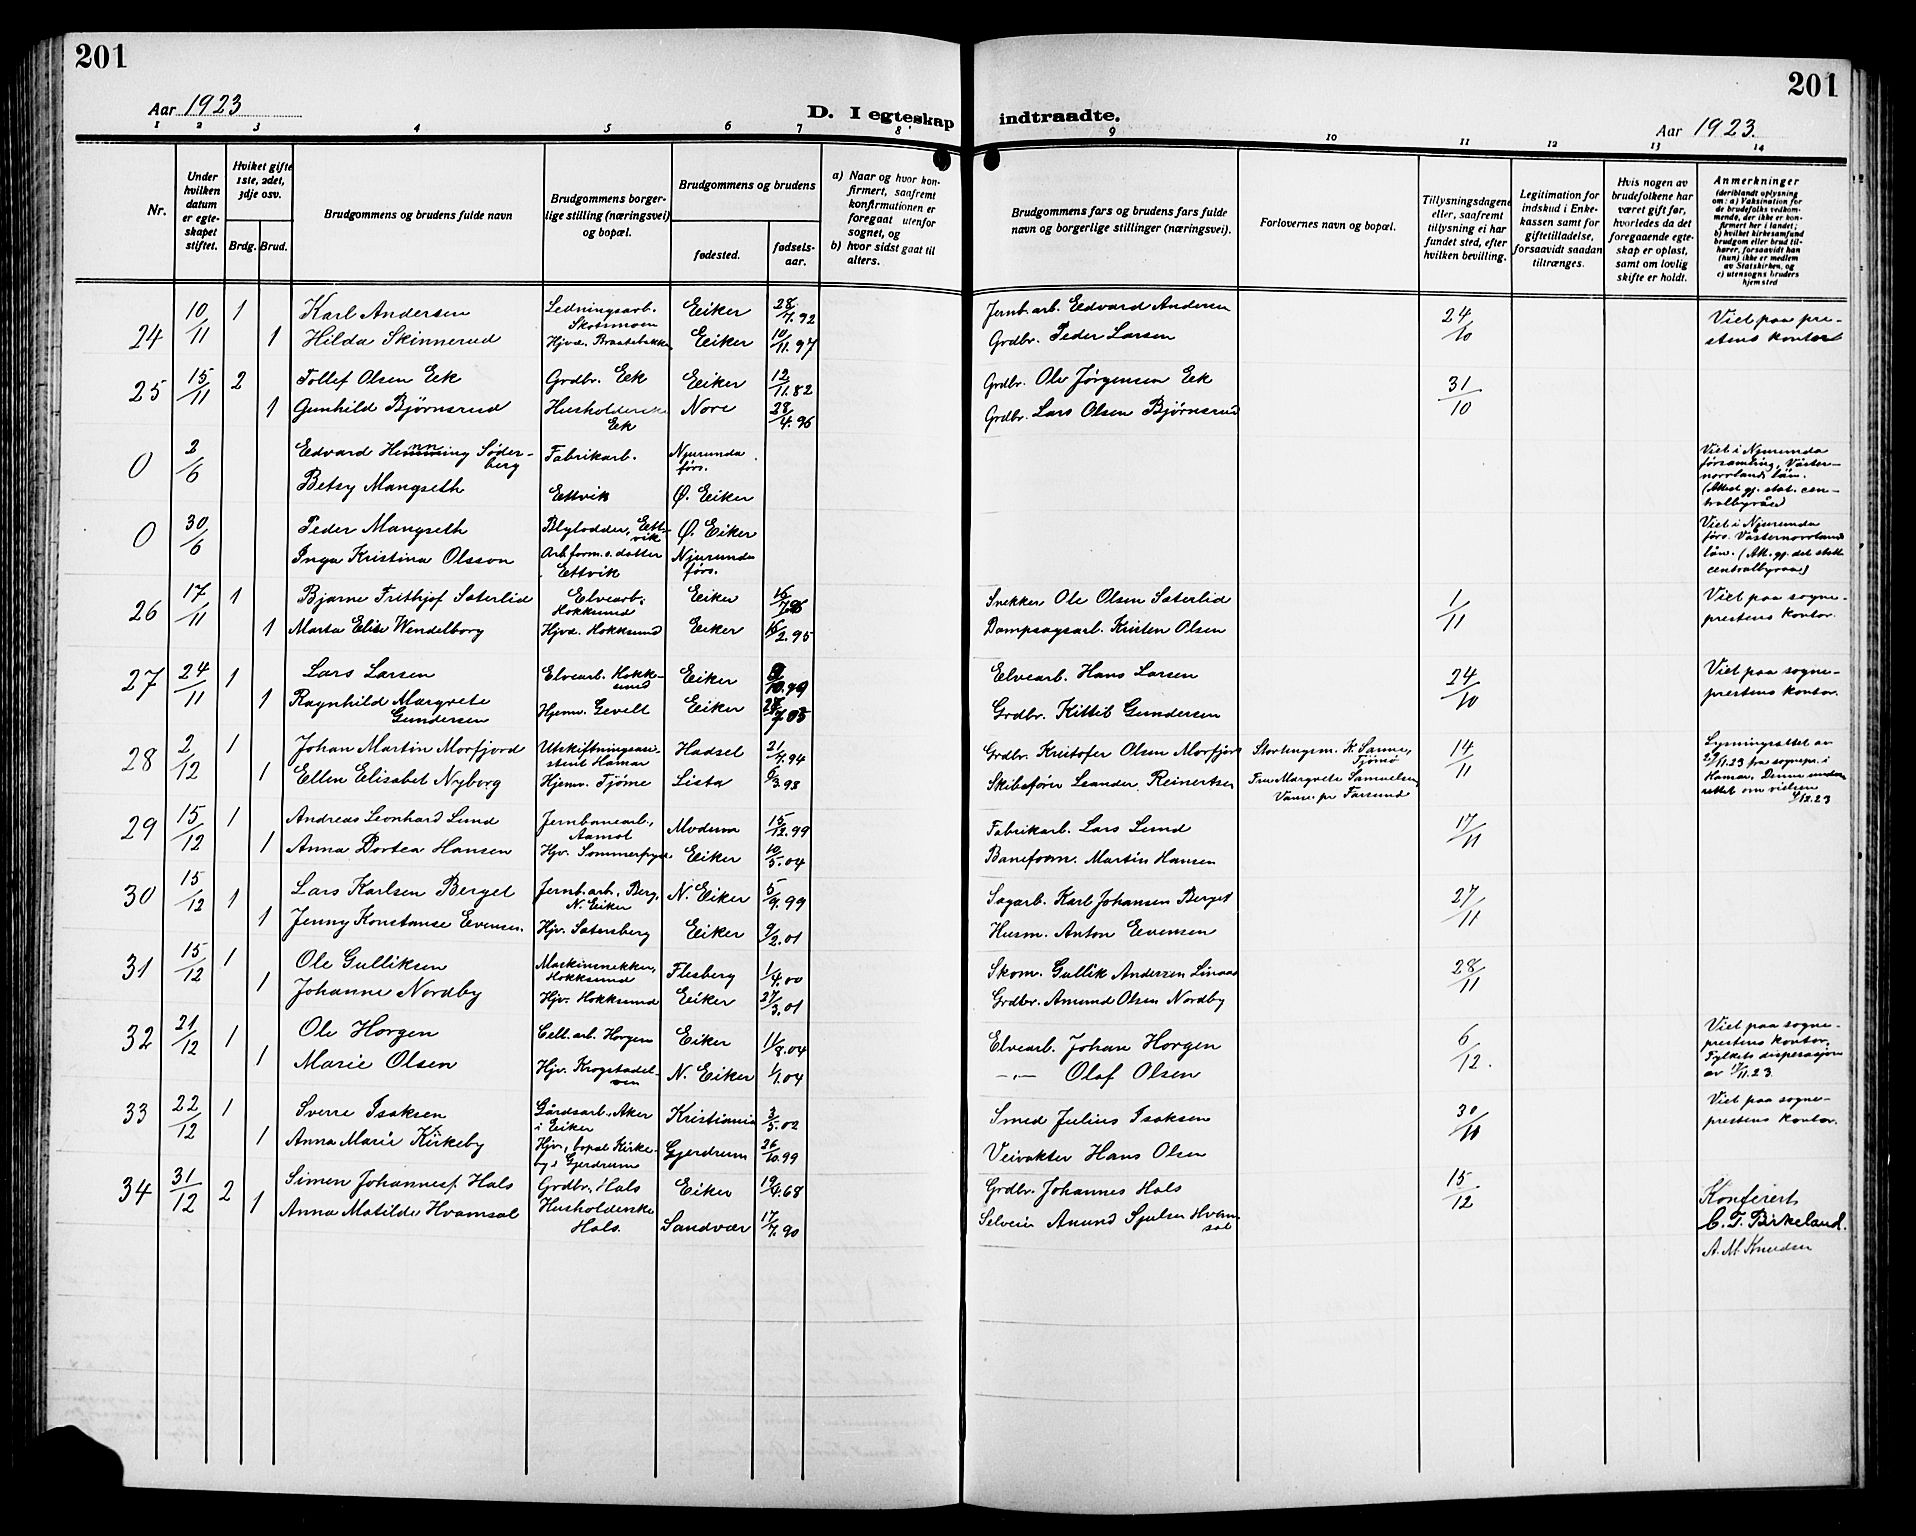 201
201
Aar 1923
D. I egteskap indtraadte.
Aar 1923.
1 2 3 4 5 6 7 8 9 10 11 12 13 14
Nr.
Under hvilken datum er egteskapet stiftet.
Hvilket gifte 1ste, 2det, 3dje osv.
Brdg. Brud.
Brudgommens og brudens fulde navn
Brudgommens borgerlige stilling (næringsvei) og bopæl.
Brudgommens og brudens
fødested.
fødselsaar.
a) Naar og hvor konfirmert, saafremt konfirmationen er foregaat utenfor sognet, og
b) hvor sidst gaat til alters.
Brudgommens fars og brudens fars fulde navn og borgerlige stillinger (næringsvei).
Forlovernes navn og bopæl.
Tillysningsdagene eller, saafremt tillysning ei har fundet sted, efter hvilken bevilling.
Legitimation for indskud i Enkekassen samt for giftetilladelse, forsaavidt saadan tiltrænges.
Hvis nogen av brudefolkene har været gift før, hvorledes da det foregaaende egteskap er opløst, samt om lovlig skifte er holdt.
Anmerkninger
(deriblandt oplysning om: a) Vaksination for de brudefolks vedkommende, der ikke er konfirmert her i landet; b) hvilket kirkesamfund brudgom eller brud tilhører, forsaavidt han (hun) ikke er medlem av Statskirken, og c) utensogns bruders hjemsted
24 10/11 1 Karl Andersen Ledningsarb. Skotsmoen Eiker 28/7.92 Jernb.arb. Edvard Andersen 24/10 Viet paa prestens kontor
1 Hilda Skinnerud Hjvd. Braatebakken Eiker 10/11.97 Grdbr. Peder Larsen
25 15/11 2 Tollef Olsen Eek Grdbr. Eek Eiker 12/11.82 Grdbr. Ole Jørgensen Eek 31/10
1 Gunhild Bjørnsrud Husholderske Eek Nore 28/4.96 Grdbr. Lars Olsen Bjørnsrud
0 2/6 Edvard Henning Söderberg Fabrikarb. Njurunda förs. Viet i Njurunda församling, Västernorrlands län. (Attest gj. stat. centralbyrån
Betsy Mangseth Ettvik Ø. Eiker
0 30/6 Peder Mangseth Blylodder, Ettvik Ø. Eiker Viet i Njurunda förs. Västernorrlands län. (Att. gj. det stat centralbyraa)
Inga Kristina Olsson Arb.form.s. datter Ettvik Njurunda förs.
26 17/11 1 Bjarne Frithjof Sæterlid Elvearb. Hokksund Eiker Snekker Ole Olsen Sæterlid 1/11 Viet paa sogneprestens kontor.
1 Marta Elise Wendelborg Hjvd. Hokksund Eiker 16/2.95 Dampsagsarb. Kristen Olsen
27 24/11 1 Lars Larsen Elvearb. Hokksund Eiker Elvearb. Hans Larsen 24/10 Viet paa sogneprestens kontor.
1 Ragnhild Margrete Gundersen Hjemv. Gevelt Eiker Grdbr. Kittil Gundersen
28 2/12 1 Johan Martin Morfjord Utskiftningsassistent Hamar Hadsel 21/4.94 Grdbr. Kristofer Olsen Morfjord Stortingsm. K. Sanne, Tjömö 14/11 Lysningsattet av 27/11.23 fra sognepr. i Hamar. Denne underrettet om vielsen 4/12.23
1 Ellen Elisabet Nyborg Hjemv. Tjöme Lista 6/3.98 Skibsfører Leander Reinertsen Fru Margrete Samuelsen, Vanse pr Farsund
29 15/12 1 Andreas Leonhard Lund Jernbanearb., Aamot Modum 15/12.99 Fabrikarb. Lars Lund 17/11
1 Anna Dortea Hansen Hjv. Sommerfryd Eiker 10/5.04 Baneform. Martin Hansen
30 15/12 1 Lars Karlsen Berget Jernb.arb., Berg, N. Eiker N. Eiker 5/9.99 Sagarb. Karl Johansen Berget 27/11
1 Jenny Konstanse Evensen. Hjv. Sætersberg Eiker 9/2.01 Husm. Anton Evensen
31 15/12 1 Ole Gulliksen Maskinsnekker, Hokksund Flesberg 1/4.00 Skom. Gullik Andersen Linaas 28/11
1 Johanne Nordby Hjv. Hokksund Eiker 27/3.01 Grdbr. Amund Olsen Nordby
32 21/12 1 Ole Horgen Cell.arb. Horgen Eiker 11/8.04 Elvearb. Johan Horgen 6/12. Viet paa sogneprestens kontor. Fylkets dispensasjon av
1 Marie Olsen Hjv. Krogstadelven N. Eiker 1/1.04 -"- Olaf Olsen
33 22/12 1 Sverre Isaksen Gårdsarb., Aker i Eiker Kristiania 3/5.02 Smed Julius Isaksen 30/11 Viet paa sogneprestens kontor.
1 Anna Marie Kirkeby Hjv., bopæl Kirkeby i Gjerdrum Gjerdrum 26/10.99 Veivokter Hans Olsen
34 31/12 2 Simen Johannesf. Hals Grdbr., Hals Eiker 19/4.68 Grdbr. Johannes Hals 15/12
1 Anna Matilde Hvamsal Husholderske Hals. Sandvær 17/7.90 Selveier Anund Sjulsen Hvamsal
Konferert
C. F. Birkeland.
A. M. Knudsen